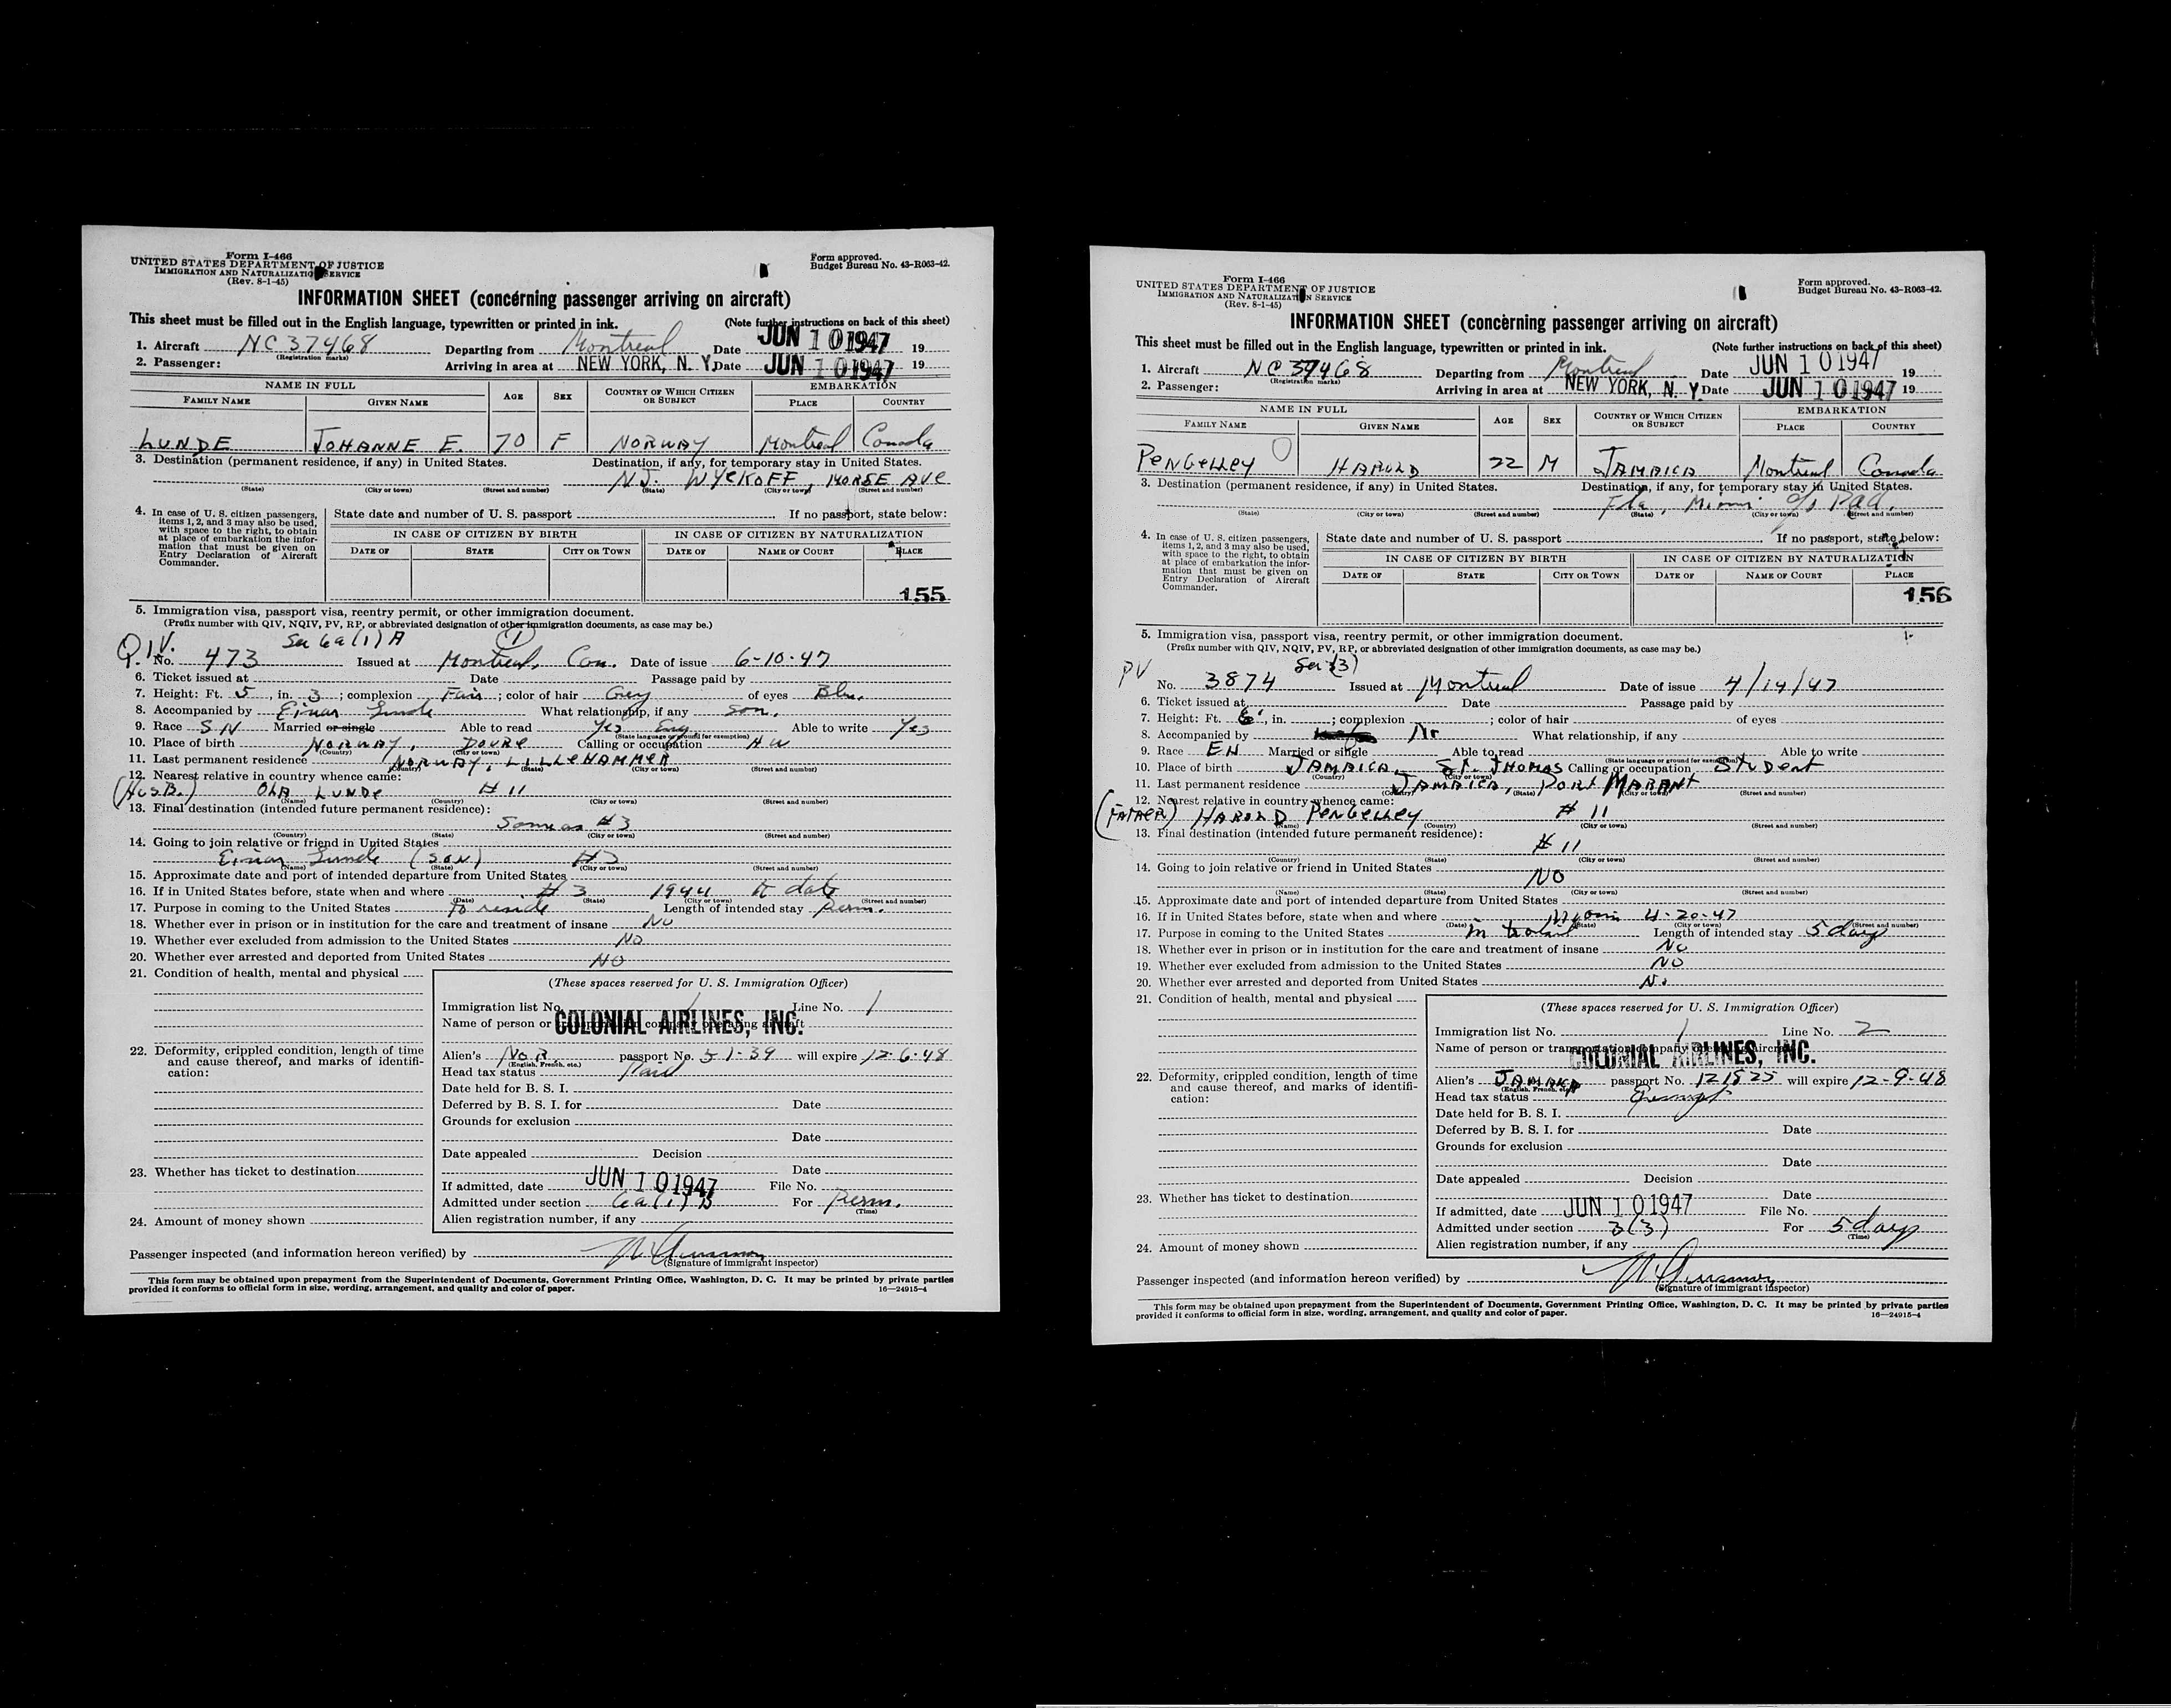 Form I-466
UNITED STATES DEPARTMENT OF JUSTICE
IMMIGRATION AND NATURALIZATION SERVICE
(Rev. 8-1-45)
Form approved.
Budget Bureau No. 43-R063-42.
INFORMATION SHEET (concerning passenger arriving on aircraft)
This sheet must be filled out in the English language, typewritten or printed in ink. (Note further instructions on back of this sheet)
1. Aircraft NC 37468 Departing from Montreal Date JUN 10 1947 19
(Registration marks)
2. Passenger: Arriving in area at NEW YORK, N. Y. Date JUN 10 1947 19
NAME IN FULL AGE SEX COUNTRY OF WHICH CITIZEN OR SUBJECT EMBARKATION
FAMILY NAME GIVEN NAME PLACE COUNTRY
LUNDE JOHANNE E. 70 F NORWAY Montreal Canada
3. Destination (permanent residence, if any) in United States. Destination, if any, for temporary stay in United States.
N.J. WYCKOFF, MORSE AVE
(State) (City or town) (Street and number) (State) (City or town) (Street and number)
4. In case of U. S. citizen passengers, items 1, 2, and 3 may also be used, with space to the right, to obtain at place of embarkation the information that must be given on Entry Declaration of Aircraft Commander.
State date and number of U. S. passport If no passport, state below:
IN CASE OF CITIZEN BY BIRTH IN CASE OF CITIZEN BY NATURALIZATION
DATE OF STATE CITY OR TOWN DATE OF NAME OF COURT PLACE
155
5. Immigration visa, passport visa, reentry permit, or other immigration document.
(Prefix number with QIV, NQIV, PV, RP, or abbreviated designation of other immigration documents, as case may be.)
Q.I.V. Sec 6a(1) A (1)
No. 473 Issued at Montreal, Can. Date of issue 6-10-47
6. Ticket issued at Date Passage paid by
7. Height: Ft. 5, in. 3; complexion Fair; color of hair Grey of eyes Blu.
8. Accompanied by Einar Lunde What relationship, if any son.
9. Race SN Married or single Able to read Yes Eng Able to write Yes
(State language or ground for exemption)
10. Place of birth NORWAY, DOVRE Calling or occupation HW
(Country) (City or town)
11. Last permanent residence NORWAY, LILLEHAMMER
(Country) (State) (City or town) (Street and number)
12. Nearest relative in country whence came:
(HUSB.) OLA LUNDE # 11
(Name) (Country) (City or town) (Street and number)
13. Final destination (intended future permanent residence):
Same as #3
(Country) (State) (City or town) (Street and number)
14. Going to join relative or friend in United States
Einar Lunde (SON) #3
(Name) (State) (City or town) (Street and number)
15. Approximate date and port of intended departure from United States
16. If in United States before, state when and where #3 1944 to date
(Date) (State) (City or town) (Street and number)
17. Purpose in coming to the United States to reside Length of intended stay Perm.
18. Whether ever in prison or in institution for the care and treatment of insane NO
19. Whether ever excluded from admission to the United States NO
20. Whether ever arrested and deported from United States NO
21. Condition of health, mental and physical
22. Deformity, crippled condition, length of time and cause thereof, and marks of identification:
23. Whether has ticket to destination
24. Amount of money shown
(These spaces reserved for U. S. Immigration Officer)
Immigration list No. 1 Line No. 1
Name of person or transportation company operating aircraft
COLONIAL AIRLINES, INC.
Alien's NOR. passport No. 51-39 will expire 12-6-48
(English, French, etc.)
Head tax status Paid
Date held for B. S. I.
Deferred by B. S. I. for Date
Grounds for exclusion
Date
Date appealed Decision
Date
If admitted, date JUN 10 1947 File No.
Admitted under section 6a(1) B For Perm.
(Time)
Alien registration number, if any
Passenger inspected (and information hereon verified) by
(Signature of immigrant inspector)
This form may be obtained upon prepayment from the Superintendent of Documents, Government Printing Office, Washington, D. C. It may be printed by private parties
provided it conforms to official form in size, wording, arrangement, and quality and color of paper. 16—24915-4
Form I-466
UNITED STATES DEPARTMENT OF JUSTICE
IMMIGRATION AND NATURALIZATION SERVICE
(Rev. 8-1-45)
Form approved.
Budget Bureau No. 43-R063-42.
INFORMATION SHEET (concerning passenger arriving on aircraft)
This sheet must be filled out in the English language, typewritten or printed in ink. (Note further instructions on back of this sheet)
1. Aircraft NC 37468 Departing from Montreal Date JUN 10 1947 19
(Registration marks)
2. Passenger: Arriving in area at NEW YORK, N. Y. Date JUN 10 1947 19
NAME IN FULL AGE SEX COUNTRY OF WHICH CITIZEN OR SUBJECT EMBARKATION
FAMILY NAME GIVEN NAME PLACE COUNTRY
PENGELLEY HAROLD 22 M JAMAICA Montreal Canada
3. Destination (permanent residence, if any) in United States. Destination, if any, for temporary stay in United States.
Fla, Miami c/o Paa.
(State) (City or town) (Street and number) (State) (City or town) (Street and number)
4. In case of U. S. citizen passengers, items 1, 2, and 3 may also be used, with space to the right, to obtain at place of embarkation the information that must be given on Entry Declaration of Aircraft Commander.
State date and number of U. S. passport If no passport, state below:
IN CASE OF CITIZEN BY BIRTH IN CASE OF CITIZEN BY NATURALIZATION
DATE OF STATE CITY OR TOWN DATE OF NAME OF COURT PLACE
156
5. Immigration visa, passport visa, reentry permit, or other immigration document.
(Prefix number with QIV, NQIV, PV, RP, or abbreviated designation of other immigration documents, as case may be.)
PV Sec 3(3)
No. 3874 Issued at Montreal Date of issue 4/14/47
6. Ticket issued at Date Passage paid by
7. Height: Ft. 6', in. ; complexion ; color of hair of eyes
8. Accompanied by No What relationship, if any
9. Race EN Married or single Able to read Able to write
(State language or ground for exemption)
10. Place of birth JAMAICA, ST. THOMAS Calling or occupation STUDENT
(Country) (City or town)
11. Last permanent residence JAMAICA, PORT MARANT
(Country) (State) (City or town) (Street and number)
12. Nearest relative in country whence came:
(FATHER) HAROLD PENGELLEY # 11
(Name) (Country) (City or town) (Street and number)
13. Final destination (intended future permanent residence):
# 11
(Country) (State) (City or town) (Street and number)
14. Going to join relative or friend in United States
NO
(Name) (State) (City or town) (Street and number)
15. Approximate date and port of intended departure from United States
16. If in United States before, state when and where Miami 4-20-47
(Date) (State) (City or town) (Street and number)
17. Purpose in coming to the United States in transit Length of intended stay 5 days
18. Whether ever in prison or in institution for the care and treatment of insane No
19. Whether ever excluded from admission to the United States NO
20. Whether ever arrested and deported from United States No
21. Condition of health, mental and physical
22. Deformity, crippled condition, length of time and cause thereof, and marks of identification:
23. Whether has ticket to destination
24. Amount of money shown
(These spaces reserved for U. S. Immigration Officer)
Immigration list No. 1 Line No. 2
Name of person or transportation company operating aircraft
COLONIAL AIRLINES, INC.
Alien's passport No. 121825 will expire 12-9-48
(English, French, etc.)
Head tax status Exempt
Date held for B. S. I.
Deferred by B. S. I. for Date
Grounds for exclusion
Date
Date appealed Decision
Date
If admitted, date JUN 10 1947 File No.
Admitted under section 3(3) For 5 days
(Time)
Alien registration number, if any
Passenger inspected (and information hereon verified) by
(Signature of immigrant inspector)
This form may be obtained upon prepayment from the Superintendent of Documents, Government Printing Office, Washington, D. C. It may be printed by private parties
provided it conforms to official form in size, wording, arrangement, and quality and color of paper. 16—24915-4